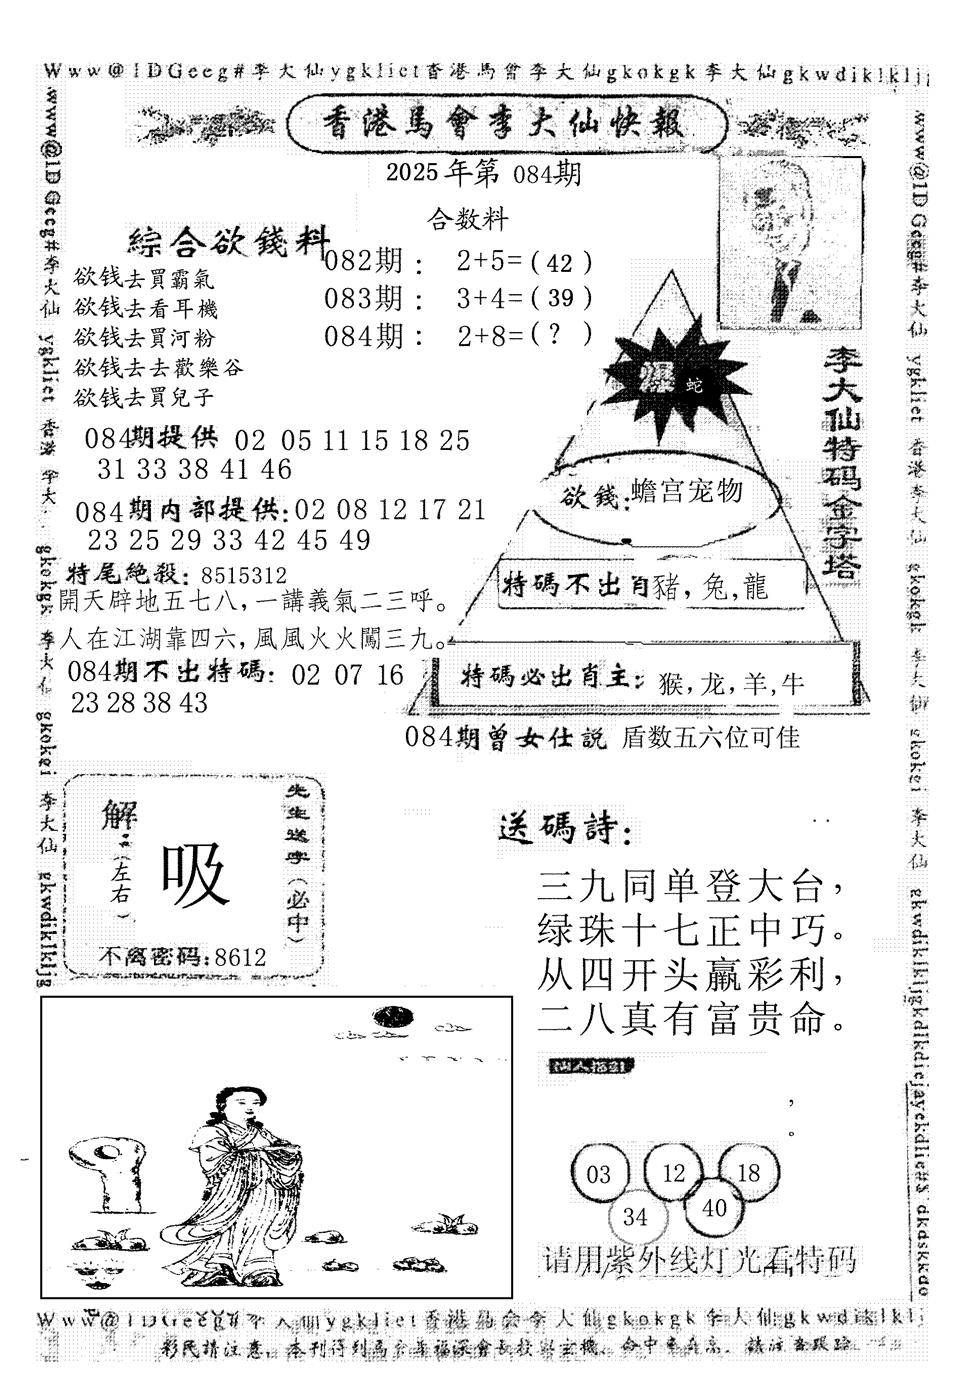 Www@1DGeeg#李大仙ygkliet香港馬會李大仙gkokgk李大仙gkwdiklkljg
香港馬會李大仙快報
2025年第 084期
合数料
綜合欲錢料
082期： 2+5=( 42 )
083期： 3+4=( 39 )
084期： 2+8=( ? )
欲钱去買霸氣
欲钱去看耳機
欲钱去買河粉
欲钱去去歡樂谷
欲钱去買兒子
084期提供 02 05 11 15 18 25
31 33 38 41 46
084期内部提供:02 08 12 17 21
23 25 29 33 42 45 49
特尾絶殺: 8515312
開天辟地五七八，一講義氣二三呼。
人在江湖靠四六，風風火火闖三九。
084期不出特碼: 02 07 16
23 28 38 43
爆 蛇
欲錢:蟾宫宠物
特碼不出肖豬，兔，龍
特碼必出肖主: 猴，龙，羊，牛
李大仙特码金字塔
084期曾女仕説 盾数五六位可佳
解
(左右)
吸
先生送字(必中)
不离密码:8612
送碼詩:
三九同单登大台，
绿珠十七正中巧。
从四开头赢彩利，
二八真有富贵命。
，
。
03 12 18
34 40
请用紫外线灯光看特码
www@1DGeeg#李大仙 ygkliet 香港 李大 gkokgk 李大仙 gkokei 李大仙 gkwdiklkljg
www@1DGeeg#李大仙 ygkliet 香港李大仙 gkokgk 李大仙 gkokei 李大仙 gkwdiklkljgkdlkdiejayekdlie#$ dkdskkdo
Www@1DGeeg#李大仙ygkliet香港馬会李大仙gkokgk李大仙gkwdiklklj
彩民請注意，本刊得到馬会